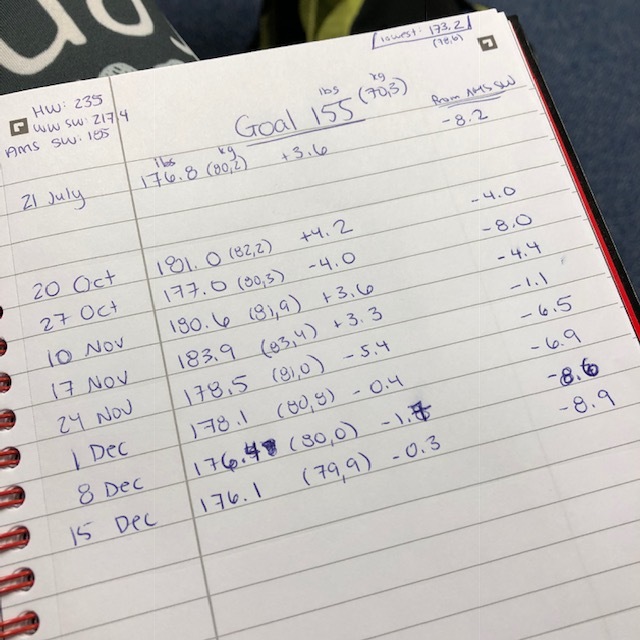 lowest: 173.2
(78,6)
HW: 235
WW SW: 217.4
AMS SW: 185
lbs kg
Goal 155 (70,3)
From AMS SW
lbs kg
21 July 176.8 (80,2) +3.6 -8.2
20 Oct 181.0 (82,2) +4.2 -4.0
27 Oct 177.0 (80,3) -4.0 -8.0
10 Nov 180.6 (81,9) +3.6 -4.4
17 Nov 183.9 (83,4) +3.3 -1.1
24 Nov 178.5 (81,0) -5.4 -6.5
1 Dec 178.1 (80,8) -0.4 -6.9
8 Dec 176.4 (80,0) -1.7 -8.6
15 Dec 176.1 (79,9) -0.3 -8.9